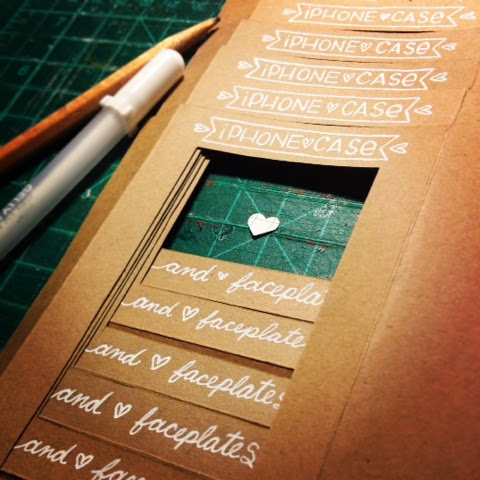 iPHONE♡CASE
iPHONE♡CASE
iPHONE♡CASE
iPHONE♡CASE
iPHONE♥CASE
and ♥ facepla
and ♡ faceplate
and ♡ faceplates
and ♡ faceplates
and ♡ fac